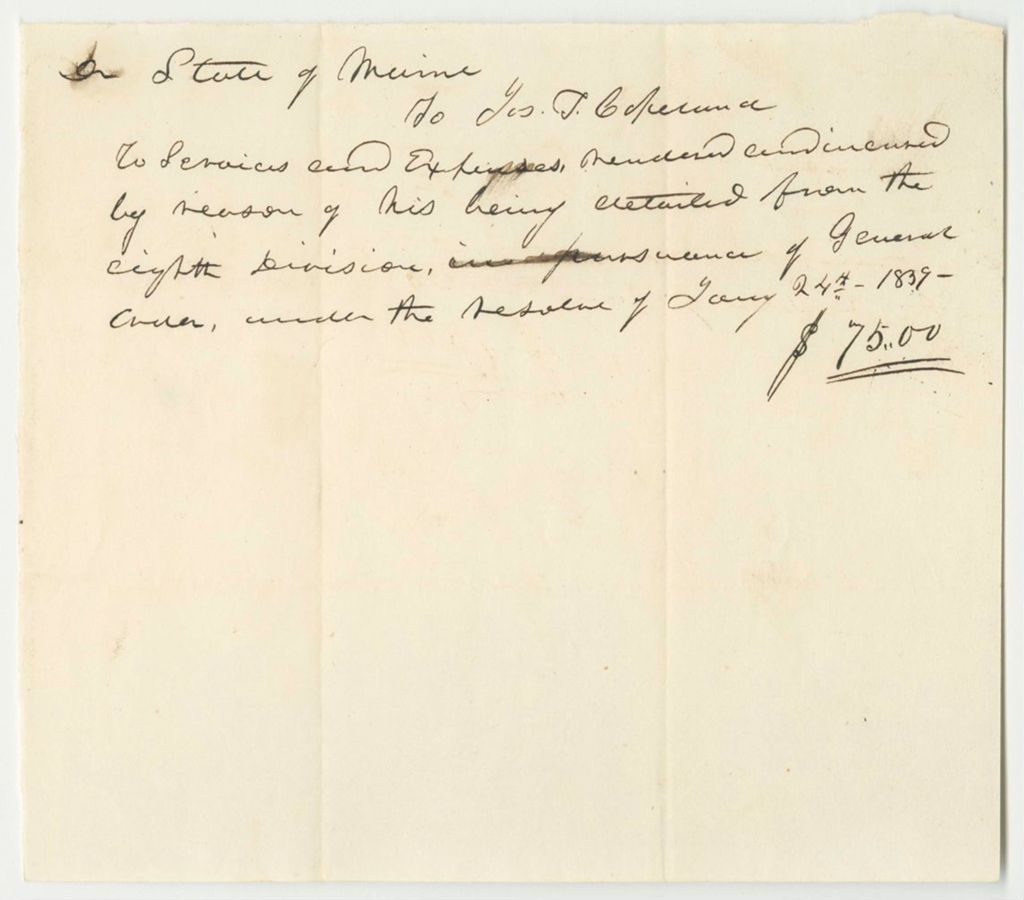 Dr State of Maine
To Jos. T. Copeland
To Services and Expenses, rendered and incurred
by reason of his being detailed from the
eighth Division, in pursuance of General
Order, under the resolve of Jany 24th - 1839 -
$ 75.00